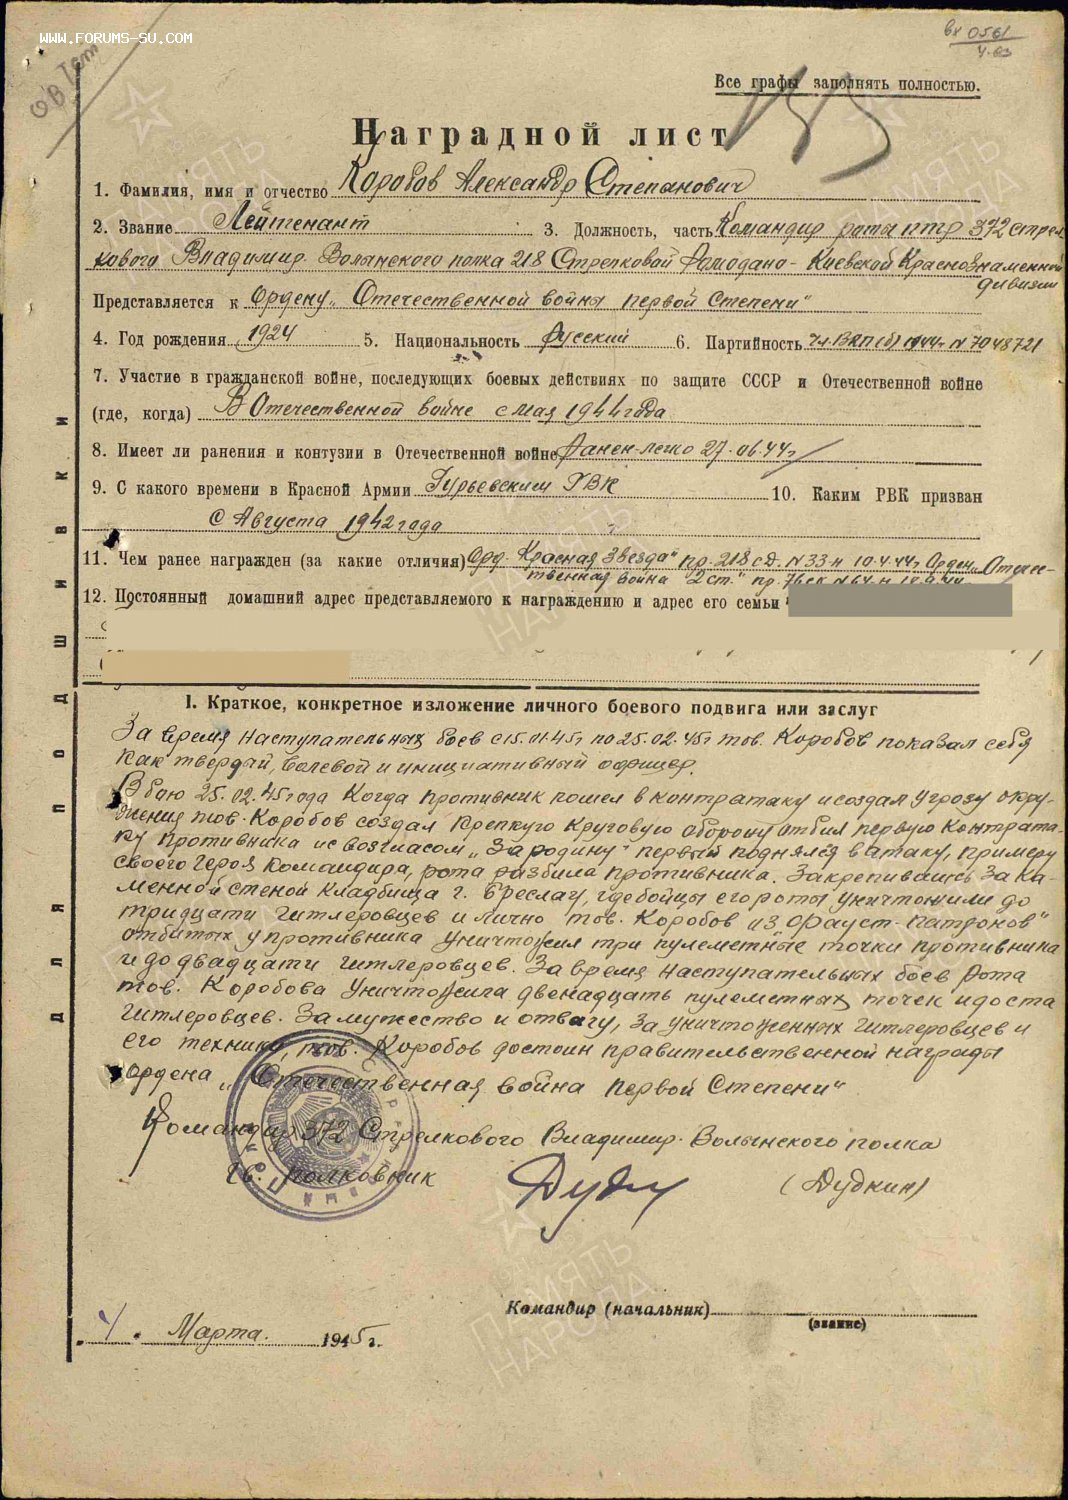 WWW.FORUMS-SU.COM
вх 0561
Все графы заполнять полностью.
Наградной лист
1. Фамилия, имя и отчество Коробов Александр Степанович
2. Звание Лейтенант 3. Должность, часть Командир роты птр 372 стрел-
кового Владимир. Волынского полка 218 Стрелковой Ромодано-Киевской Краснознаменной
дивизии
Представляется к Ордену „Отечественной войны первой Степени"
4. Год рождения 1924 5. Национальность Русский 6. Партийность Чл. ВКП(б) 1944г N 7048721
7. Участие в гражданской войне, последующих боевых действиях по защите СССР и Отечественной войне
(где, когда) В Отечественной войне с мая 1944 года
8. Имеет ли ранения и контузии в Отечественной войне Ранен-легко 27.06.44г
9. С какого времени в Красной Армии Гурьевским РВК 10. Каким РВК призван
С Августа 1942 года
11. Чем ранее награжден (за какие отличия) Орд. Красная Звезда" пр. 218 сд. N 33-н 10.4.44г Орден „Отечес-
твенная война 2 ст." пр.
12. Постоянный домашний адрес представляемого к награждению и адрес его семьи
ДЛЯ ПОДШИВКИ
I. Краткое, конкретное изложение личного боевого подвига или заслуг
За время наступательных боев с 15.01.45г по 25.02.45г тов. Коробов показал себя
как твердый, волевой и инициативный офицер.
В бою 25.02.45 года Когда противник пошел в контратаку и создал угрозу окру-
жения тов. Коробов создал крепкую круговую оборону отбил первую контрата-
ку противника и с возгласом „За родину" первый поднялся в атаку, примеру
своего героя командира, рота разбила противника. Закрепившись за ка-
менной стеной кладбища г. Бреслау, где бойцы его роты уничтожили до
тридцати гитлеровцев и лично тов. Коробов из „Фауст-патронов"
отбитых у противника уничтожил три пулеметные точки противника
и до двадцати гитлеровцев. За время наступательных боев рота
тов. Коробова уничтожила двенадцать пулеметных точек и до ста
гитлеровцев. За мужество и отвагу, за уничтоженных гитлеровцев и
его технику, тов. Коробов достоин правительственной награды
ордена „Отечественная война первой Степени"
Командир 372 Стрелкового Владимир. Волынского полка
Гв. полковник (Дудкин)
Командир (начальник)
(звание)
4. Марта. 1945 г.
ПАМЯТЬ
НАРОДА